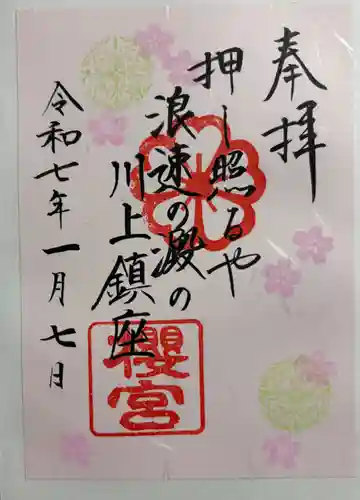 奉拝
押し照るや
浪速の殿の
川上鎮座
令和七年一月七日
櫻宮